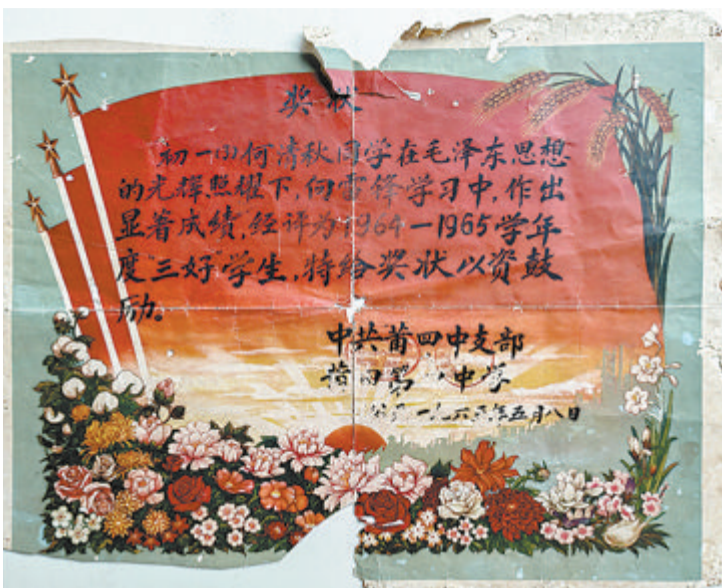 奖状
初一(1)何清秋同学在毛泽东思想
的光辉照耀下,向雷锋学习中,作出
显著成绩,经评为1964—1965学年
度"三好"学生,特给奖状以资鼓
励。
中共莆四中支部
莆田第 中学
一九六五年五月八日